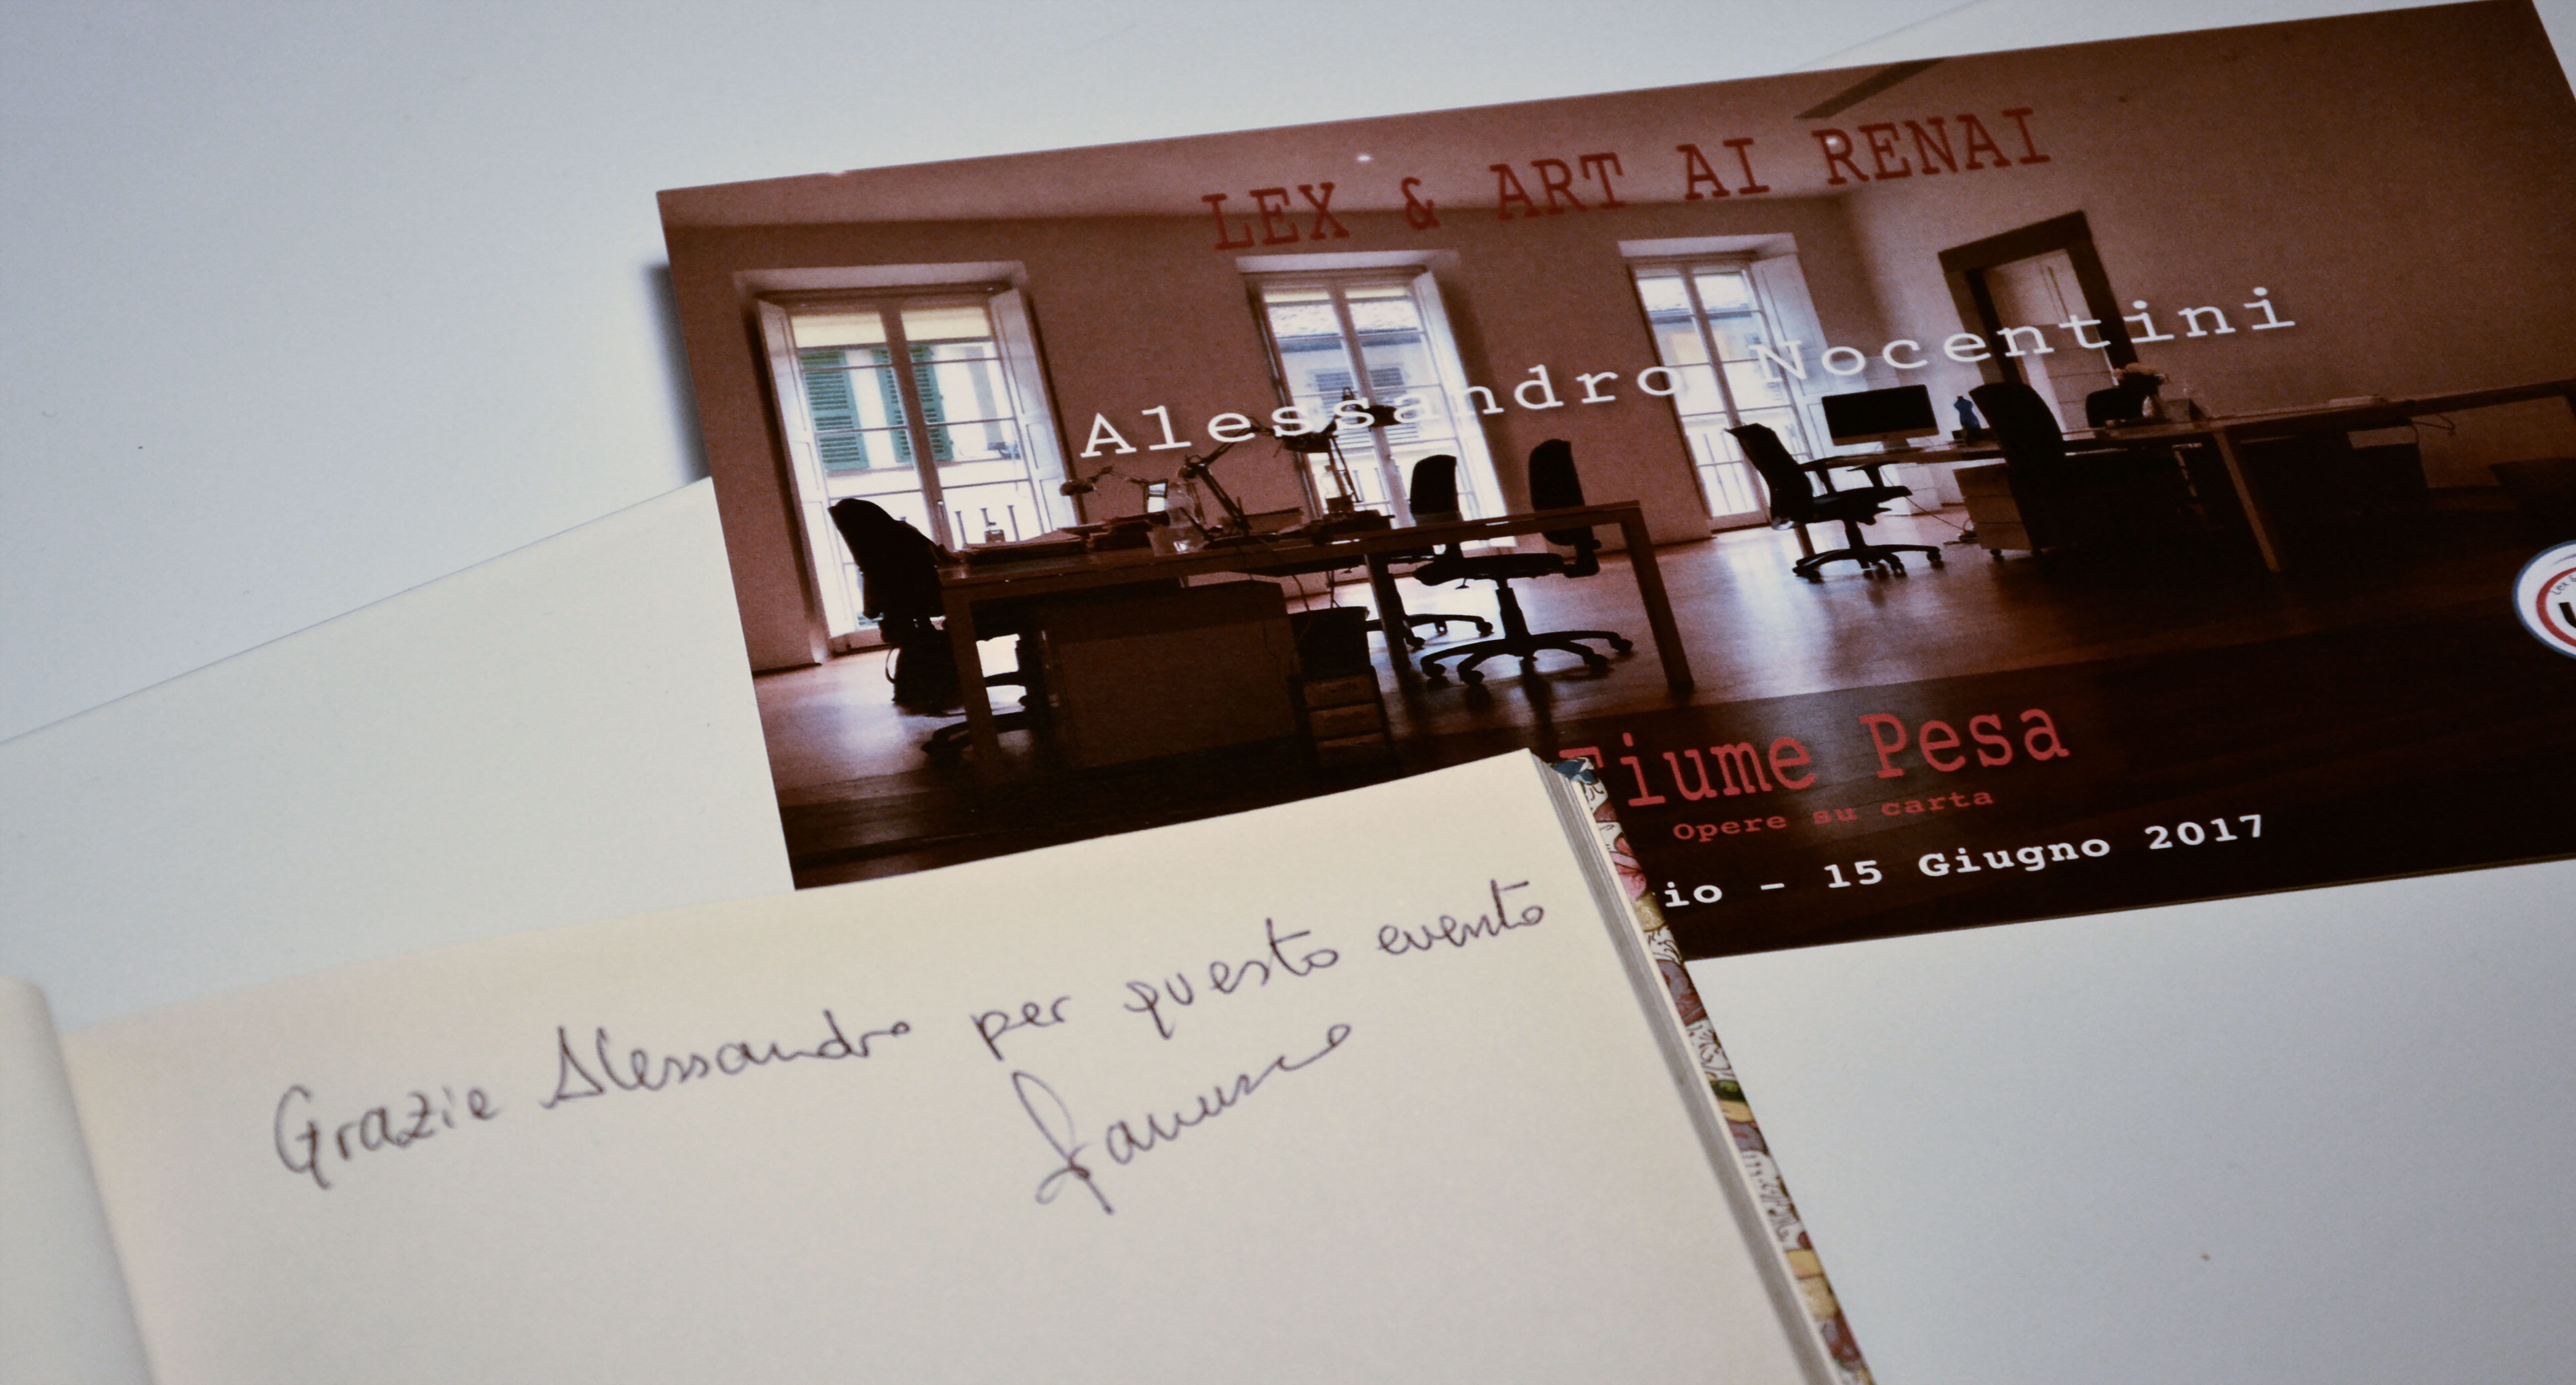 LEX & ART AI RENAI
Alessandro Nocentini
Fiume Pesa
Opere su carta
io - 15 Giugno 2017
Grazie Alessandro per questo evento